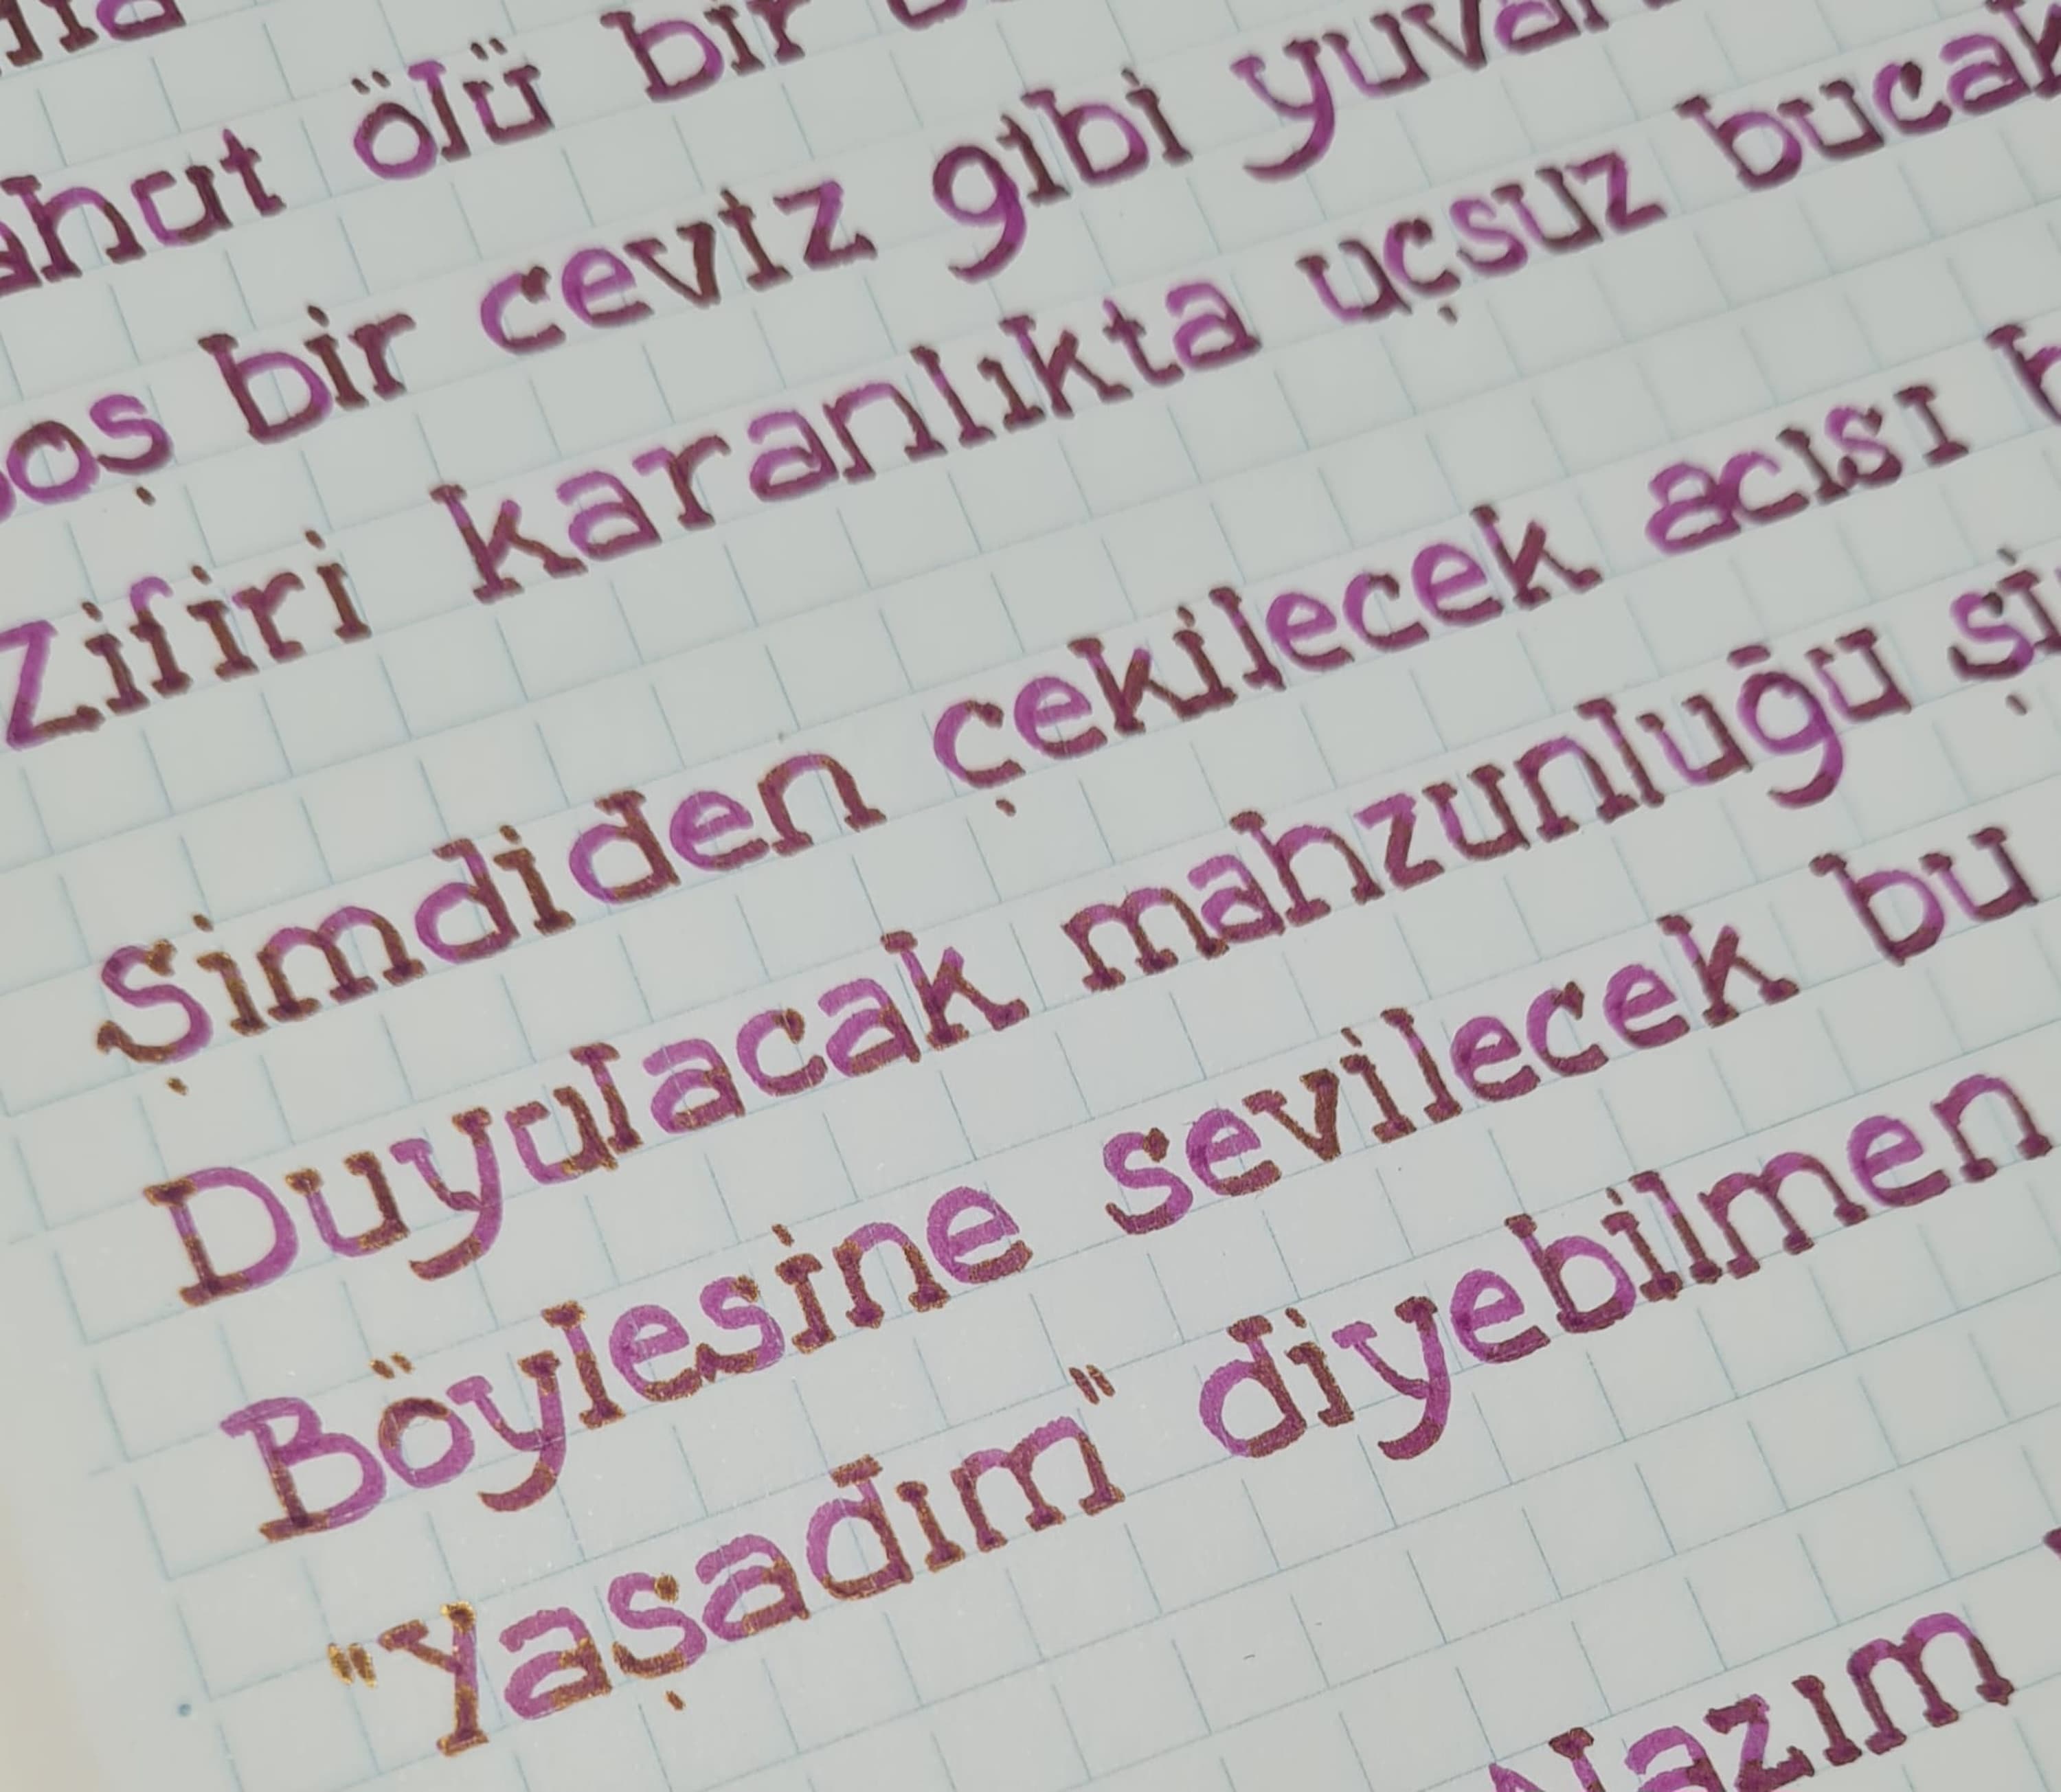 ölü bir
bir ceviz gibi
Zifiri karanlıkta uçsuz
Şimdiden çekilecek acısı
Duyulacak mahzunluğu
Böylesine sevilecek bu
"Yaşadım" diyebilmen
Nazım